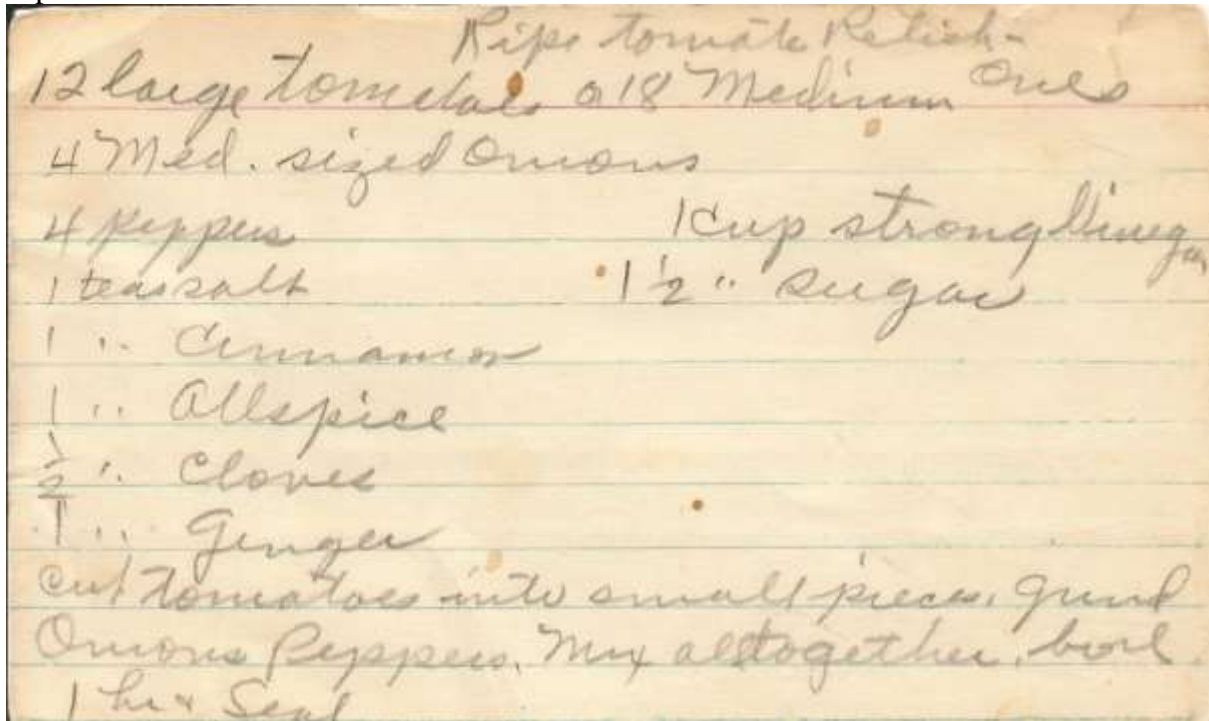 Ripe tomato Relish-
12 large tomatoes or 18 Medium Ones
4 Med. sized Onions
4 peppers 1 cup strong Vinegar
1 teas salt 1 1/2 " sugar
1 " Cinnamon
1 " Allspice
1/2 " Cloves
1 " Ginger
cut tomatoes into small pieces, grind
Onions Peppers. Mix altogether, boil
1 hr & Seal